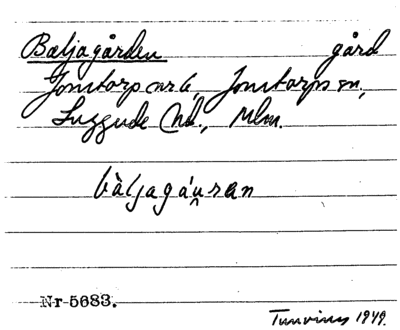 Bäljagården gård
Jonstorp nr 6, Jonstorps sn,
Luggude hd., Mlm.
bàljagáu̯ren
Nr 5683.
Tunving 1949.